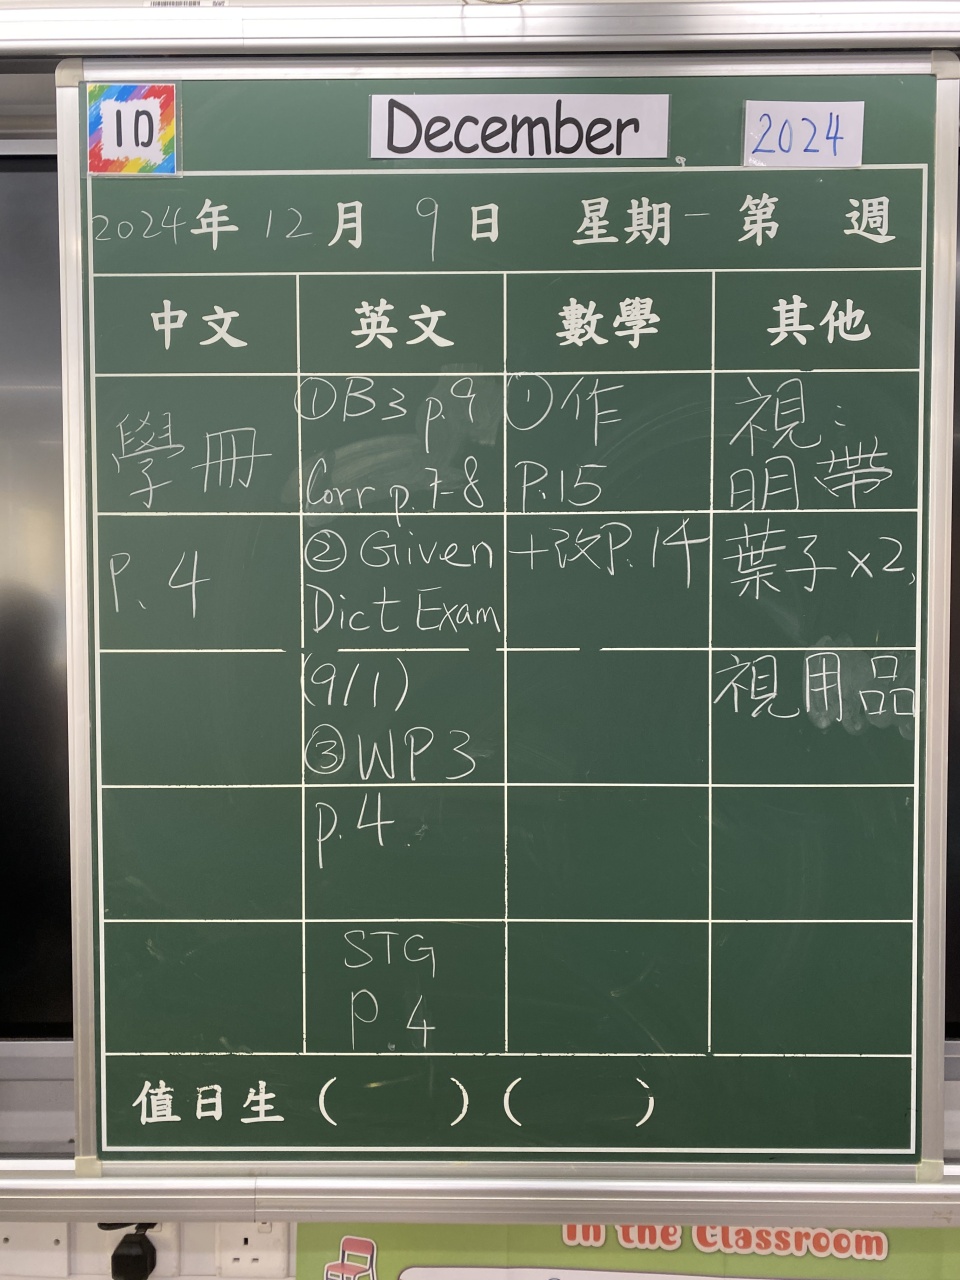 1D
December
2024
2024年 12月 9日 星期一 第 週
中文 英文 數學 其他
學冊
P. 4
①B3 p.9
Corr p.7-8
② Given
Dict Exam
(9/1)
③WP3
p.4.
STG
P.4
①作
P.15
+改P.14
視:
明帶
葉子x2,
視用品
值日生 ( ) ( )
In the Classroom